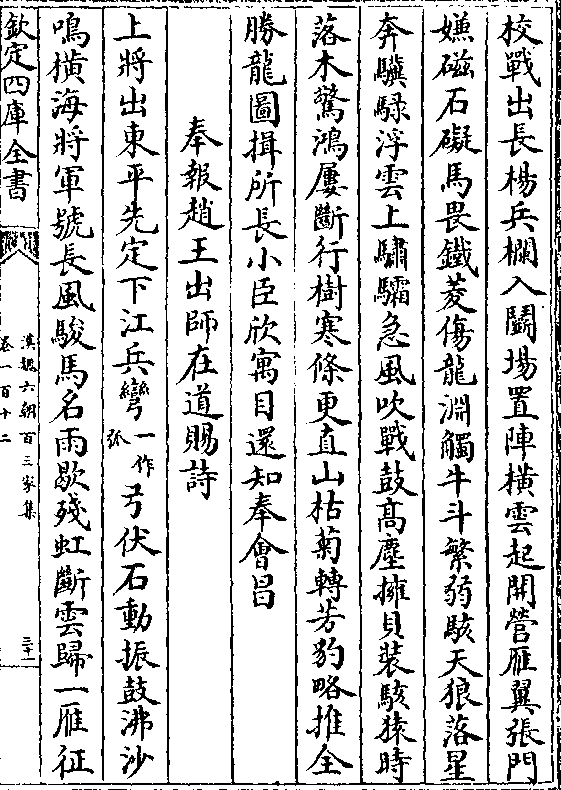 校戰出長楊兵欄入鬬場置陣橫雲起開營雁翼張門
嫌磁石礙馬畏鐵菱傷龍淵觸牛斗繁弱駭天狼落星
奔驥騄浮雲上驌驦急風吹戰鼓髙塵擁貝裝駭猿時
落木驚鴻屢斷行樹寒條更直山枯菊轉芳豹略推全
勝龍圖揖所長小臣欣寓目還知奉會昌
奉報趙王出師在道賜詩
上將出東平先定下江兵彎一作弧弓伏石動振鼓沸沙
鳴橫海將軍號長風駿馬名雨歇殘虹斷雲歸一雁征
欽定四庫全書
漢魏六朝百三家集
卷一百十二
三十一